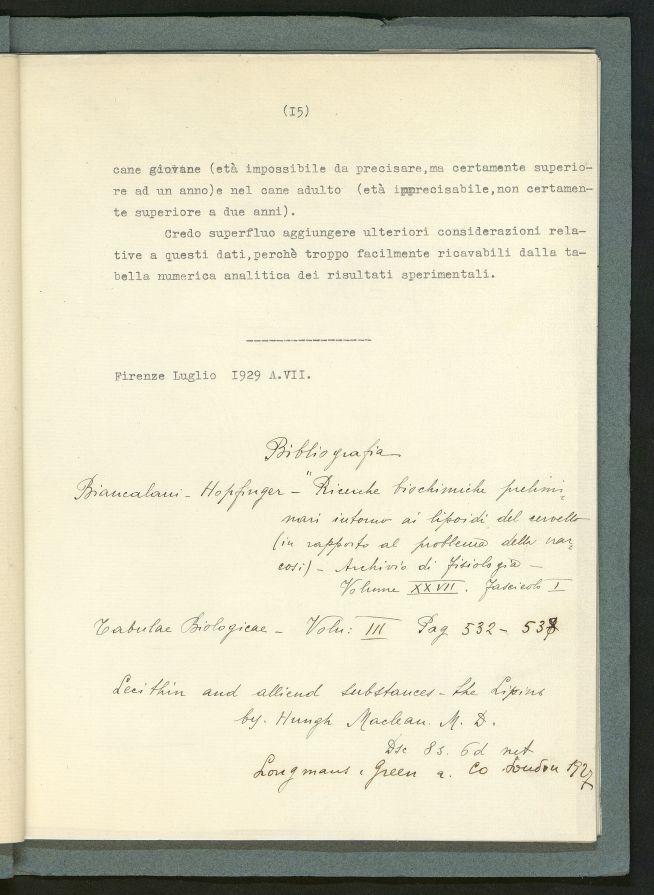 (I5)
cane giovane (età impossibile da precisare,ma certamente superio-
re ad un anno)e nel cane adulto (età imprecisabile,non certamen-
te superiore a due anni).
Credo superfluo aggiungere ulteriori considerazioni rela-
tive a questi dati,perchè troppo facilmente ricavabili dalla ta-
bella numerica analitica dei risultati sperimentali.
Firenze Luglio I929 A.VII.
Bibliografia
Biancalani - Hopfinger - "Ricerche biochimiche prelimi-
nari intorno ai lipoidi del cervello
(in rapporto al problema della nar-
cosi) - Archivio di fisiologia -
Volume XXVII. fascicolo I
Tabulae Biologicae - Volu: III Pag 532 - 538
Lecithin and alliend substances - the Lipins
by. Hungh Maclean. M. D.
Dsc 8s. 6d net
Longmans, Green a. Co London 1927